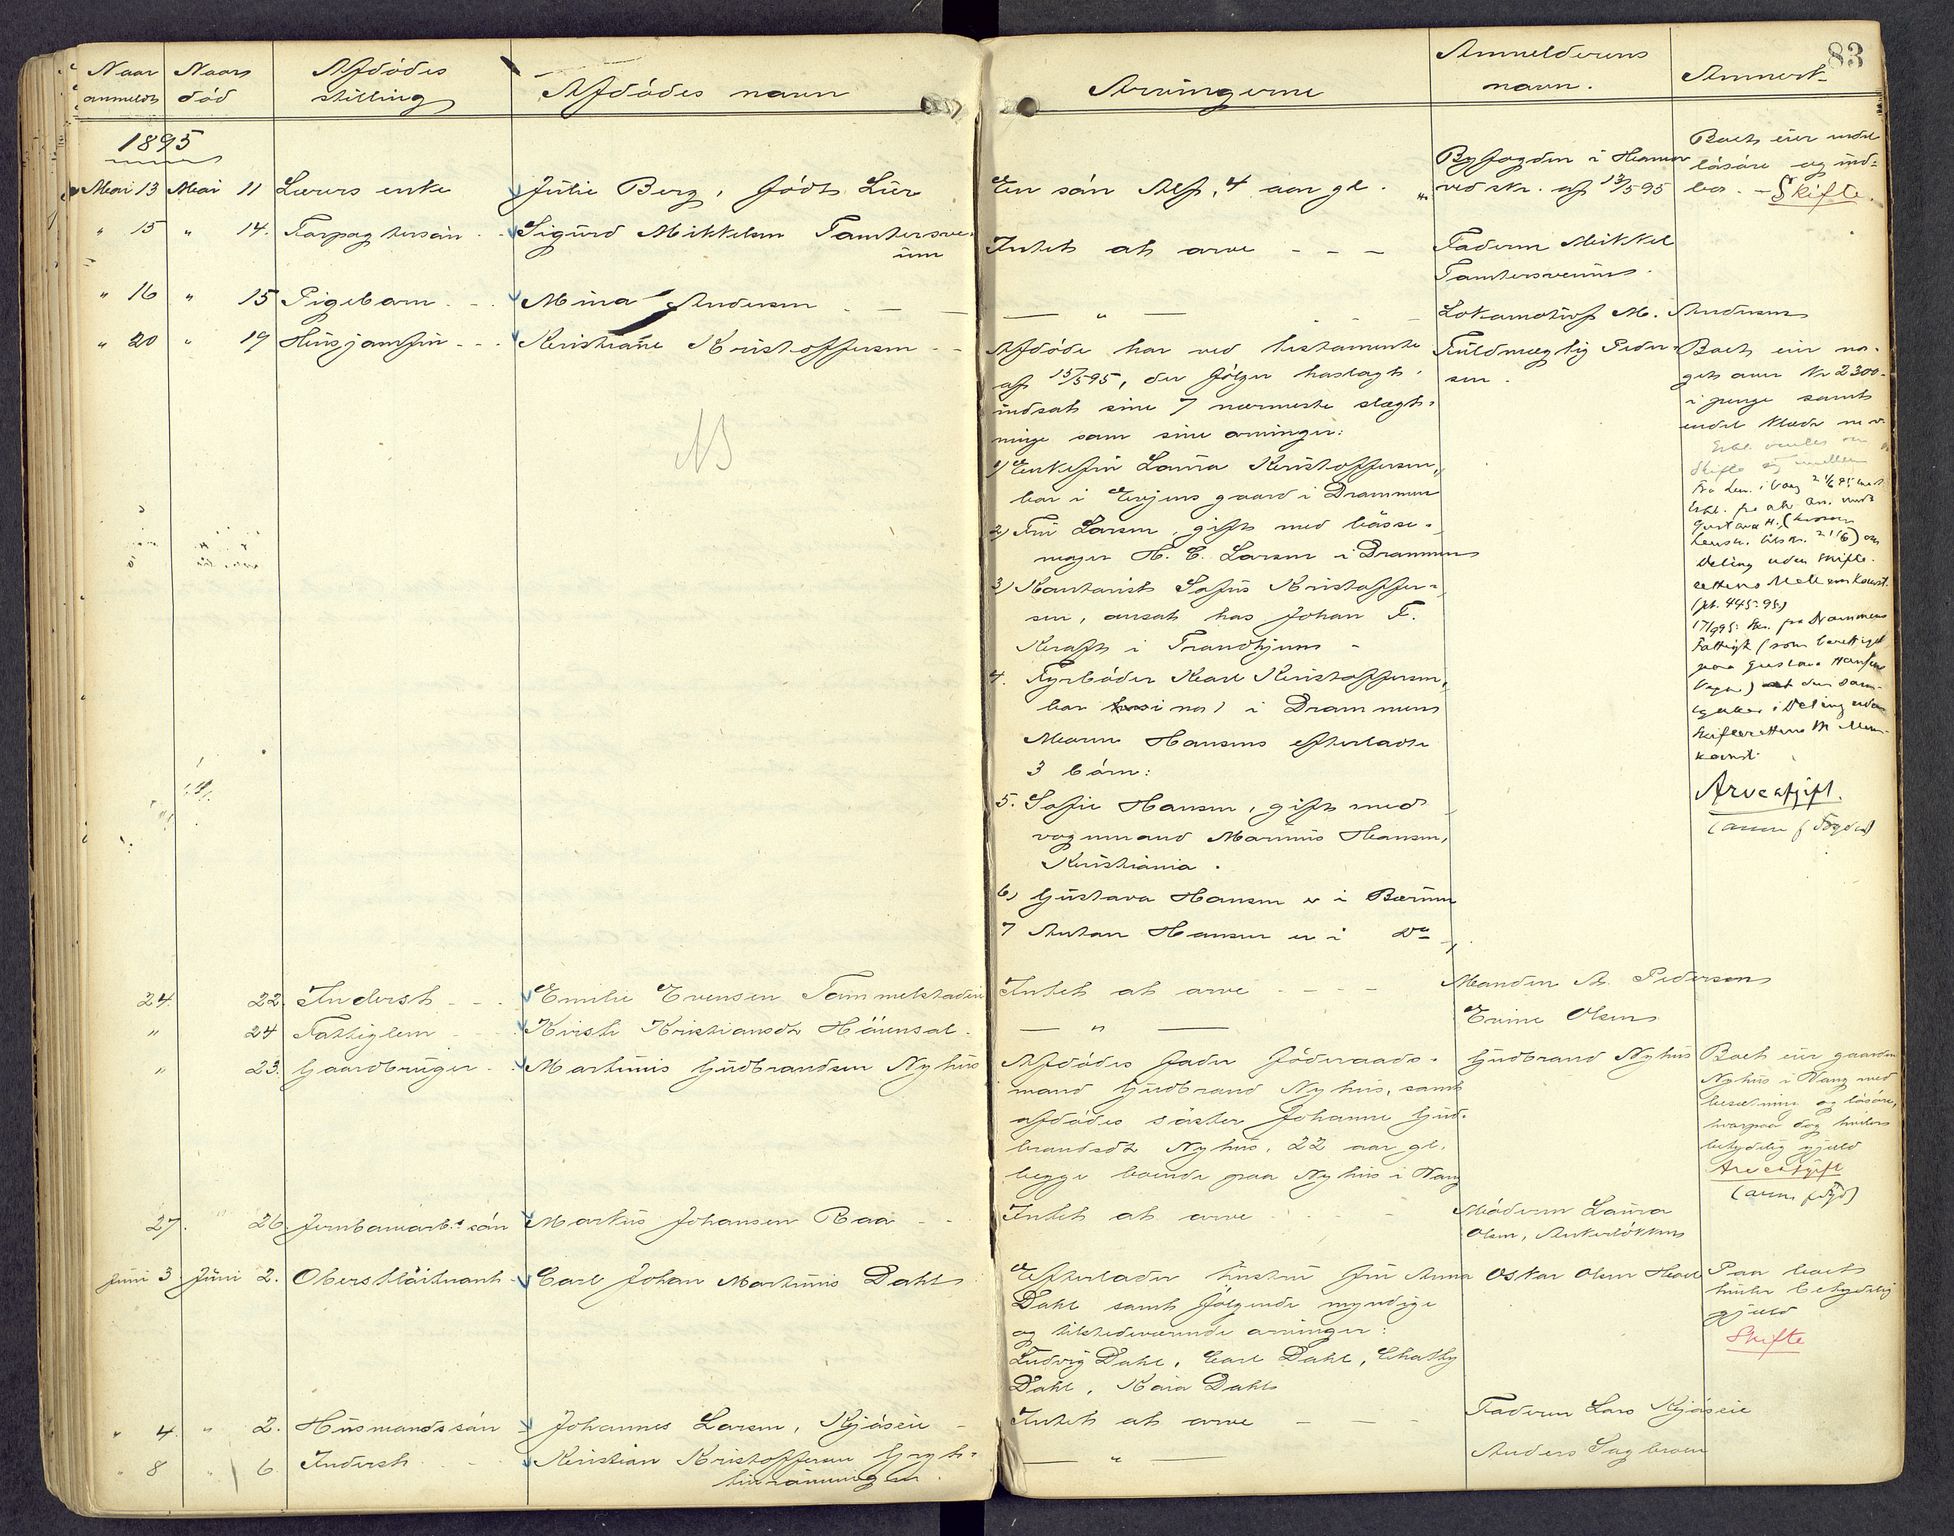 83
Naar anmeldt
Naar død
Afdødes stilling
Afdødes navn
Arvingerne
Anmelderens navn.
Anmerk.
1895
Mai 13 Mai 11 Lærers enke Julie Berg, født Lier En søn Alf, 4 aar gl. Byfogden i Hamar
ved skr. af 13/5 95
Boet eier endel
løsøre og ind-
bo. - Skifte.
" 15 " 14. Forpagtersøn Sigurd Mikkelsen Tomtersve-
een
Intet at arve - - - Faderen Mikkel
Tomtersveen
" 16 " 15 Pigebarn Mina Andersen - " - Lokomotivf. M. Andersen
" 20 " 19 Husjomfru Kristiane Kristoffersen
NB
Afdøde har ved testamente
af 15/5 95, der følger vedlagt,
indsat sine 7 nærmeste slægt-
ninge som sine arvinger:
1) Enkefru Laura Kristoffersen,
bor i Engens gaard i Drammen
2) Fru Larsen, gift med bøsse-
mager H. C. Larsen i Drammen
3) Kontorist Sofus Kristoffer-
sen, ansat hos Johan F.
Kraft i Trondhjem
4. Fyrbøder Karl Kristoffersen,
bor i Drammen
Maren Hansens efterladte
3 børn:
5. Sofie Hansen, gift med
vognmand Marinus Hansen,
Kristiania.
6) Gustava Hansen er i Bærum
7 Anton Hansen er i Do
Fuldmægtig Peder-
sen.
Boet eier no-
get over Kr 2300-
i penge samt
endel klæder m.v.
Deling uden skifte-
rettens Mellemkomst.
(jf. 445-95)
17/9 95: Skr. fra Drammens
Fattigk. (som berettiget
paa Gustava Hansens
Vegne) at den sam-
tykker i Deling uden
Skifterettens Mellem-
komst.
Arveafgift.
24. 22. Inderst Emilie Evensen Tommelstadeie Intet at arve - - - Manden A. Pedersen
" 24 Fattiglem Kirsti Kristiansdt. - " - Erine Olsen
" 23. Gaardbruger Martinus Gudbrandsen Nyhus
Afdødes fader føderaads-
mand Gudbrand Nyhus, samt
afdødes søster Johanne Gud-
brandsdt Nyhus, 22 aar gl.
begge boende paa Nyhus i Vang
Gudbrand Nyhus
Boet eier gaarden
Nyhus i Vang med
besætning og løsøre,
hvorpaa dog hviler
betydelig gjæld
Arveafgift
27. 26. Jernbanearb.s søn Markus Johansen Raa Intet at arve Moderen Laura
Olsen, Ankerløkken
Juni 3 Juni 2. Oberstløitnant Carl Johan Martinus Dahl
Efterlader hustru fru Anna
Dahl samt følgende myndige
og tilstedeværende arvinger:
Ludvig Dahl, Carl Dahl, Chatty
Dahl, Kaia Dahl
Oskar Olsen
Paa boet
hviler betydelig
gjæld
Skifte
" 4. " 2. Husmandssøn Johannes Larsen, Kjøseie Intet at arve - - - Faderen Lars Kjøseie
" 8 " 6 Inderst Kristian Kristoffersen - " - Anders Sagbroen